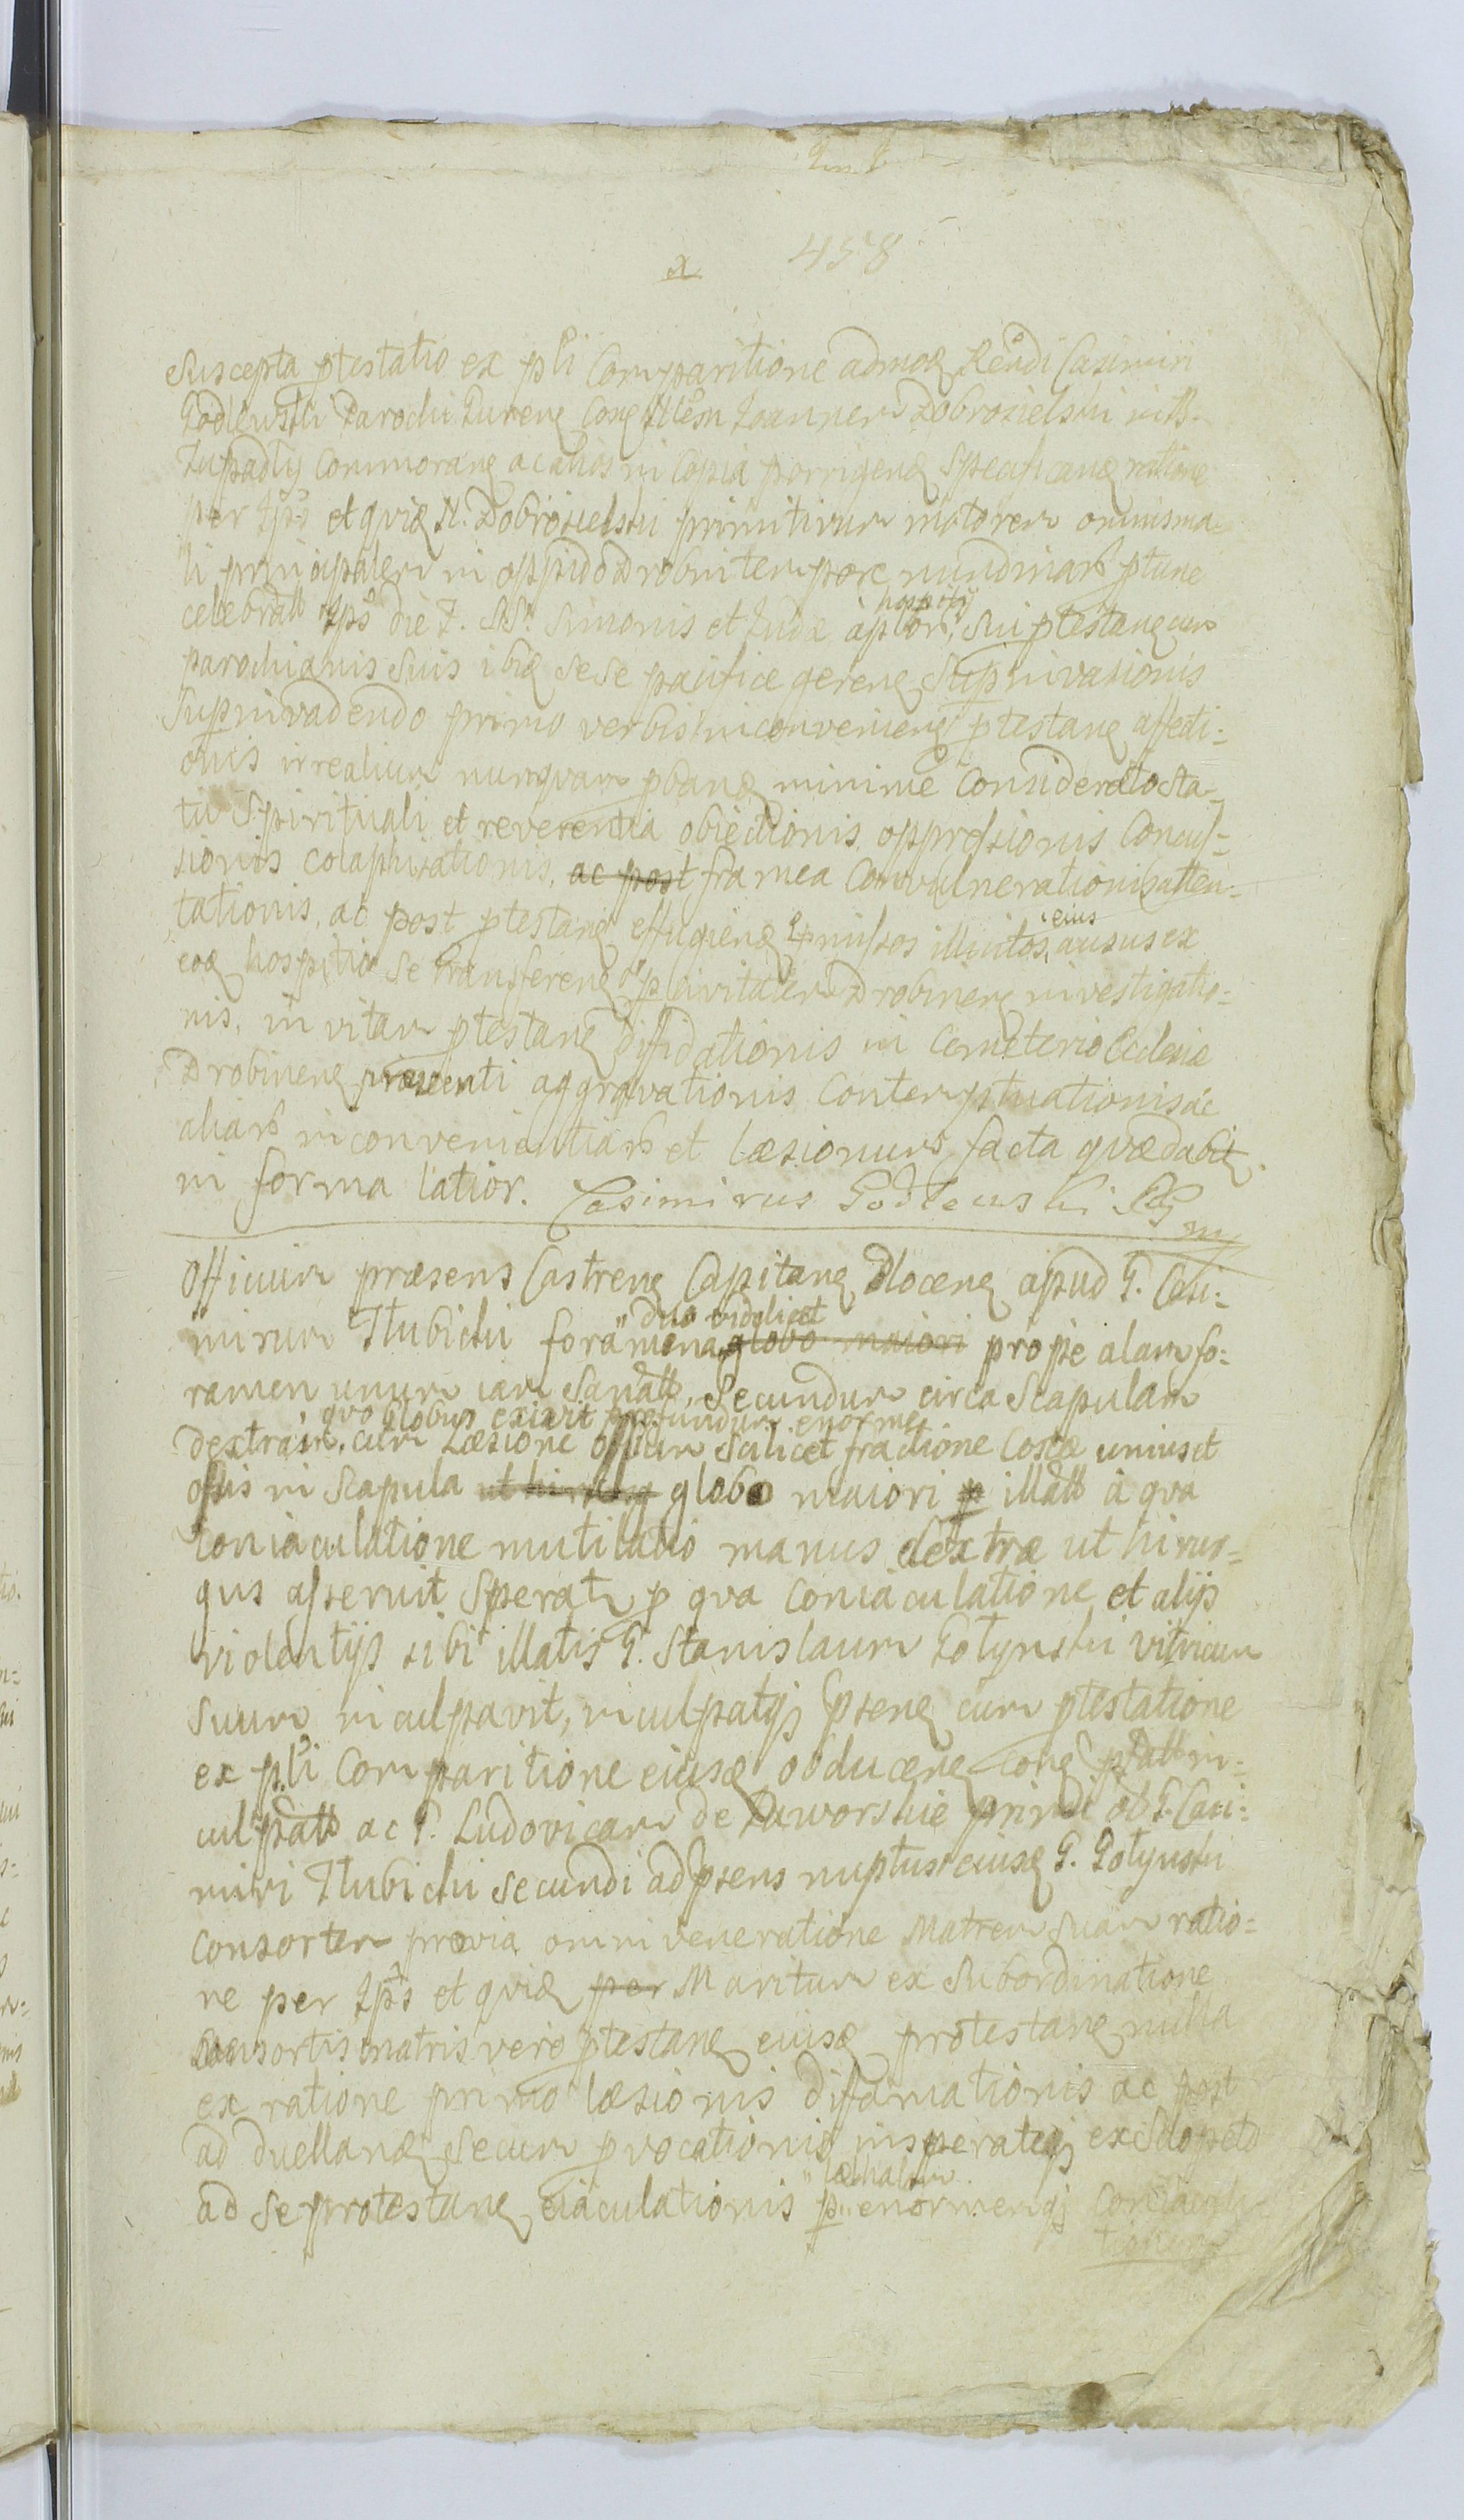 458
x
Suscepta ptestatio ex pli Comparitione admoq Rendi Casimiri
Godlewski Parochi cong Joannem Dobrosielski in B.
commorang ac alios in Copia porrigeng Specificang ratione
per Ips et quia N. Dobrosielski primitivum motorem omnis ma-
li principalem in oppido Drobni tempore nundinarb ptunc
celebratt Ips die F. SS. Simonis et Judæ aptor, hospitij sui ptestang cum
parochianis suis ibq sese pacifice gereng Supinvasionis
Supinvadendo primo verbis inconvenieng ptestang affecti:
onis irrealium nunquam pbang minime Considerato sta-
tu Spirituali et reverentia obiectionis oppressionis Concus=
sionis colaphizationis, ac post framea Convulnerationis atten-
tationis, ac post ptestang effugieng p missos illicitos, eius ausus ex
eoq hospitio se transfereng p civitatem Drobineng investigatio=
nis, in vitam ptestang diffidationis in Cemeterio Eclesiæ
Drobineng præsenti aggravationis Contemptuationis ac
aliarb inconvenientiarb et læsionum facta quæ dabit
in forma latior. Casimirus Godlewski mp
Officium præsens Castreng Capitang Ploceng apud G. Casi:
mirum Hubicki foramena duo videlicet globo maiori prope alam fo:
ramen unum iam Sanatt, Secundum circa Scapulam
dextram, quo globus exivit profundum enorme
cum Læsione ossium scilicet fractione Costæ unius et
ossis in Scapula globo maiori p illatt à qva
Coniaculatione mutilatio manus dextræ ut hirur=
gus asseruit Sperat p qva Coniaculatione et alijs
violentijs sibi illatis G. Stanislaum Gotynski vitricum
suum inculpavit, inculpatqj psens cum ptestatione
ex pli Comparitione eiusq obduceng cong pfatt in=
culpatt ac G. Ludovicam de Jaworskie primi olb G. Casi:
miri Hubicki secundi ad psens nuptus eiusq G. Gotynski
Consortem prævia omni veneratione Matrem Suam ratio=
ne per Ips et quia per Maritum ex Subordinatione
Consortis matris vero ptestang eiusq protestang nulla
ex ratione primo læsionis difamationis ac post
ad duellang secum pvocationis insperateqj ex Sclopeto
ad se protestang eiaculationis p læthalem enormemqj Coniacula-
tionem